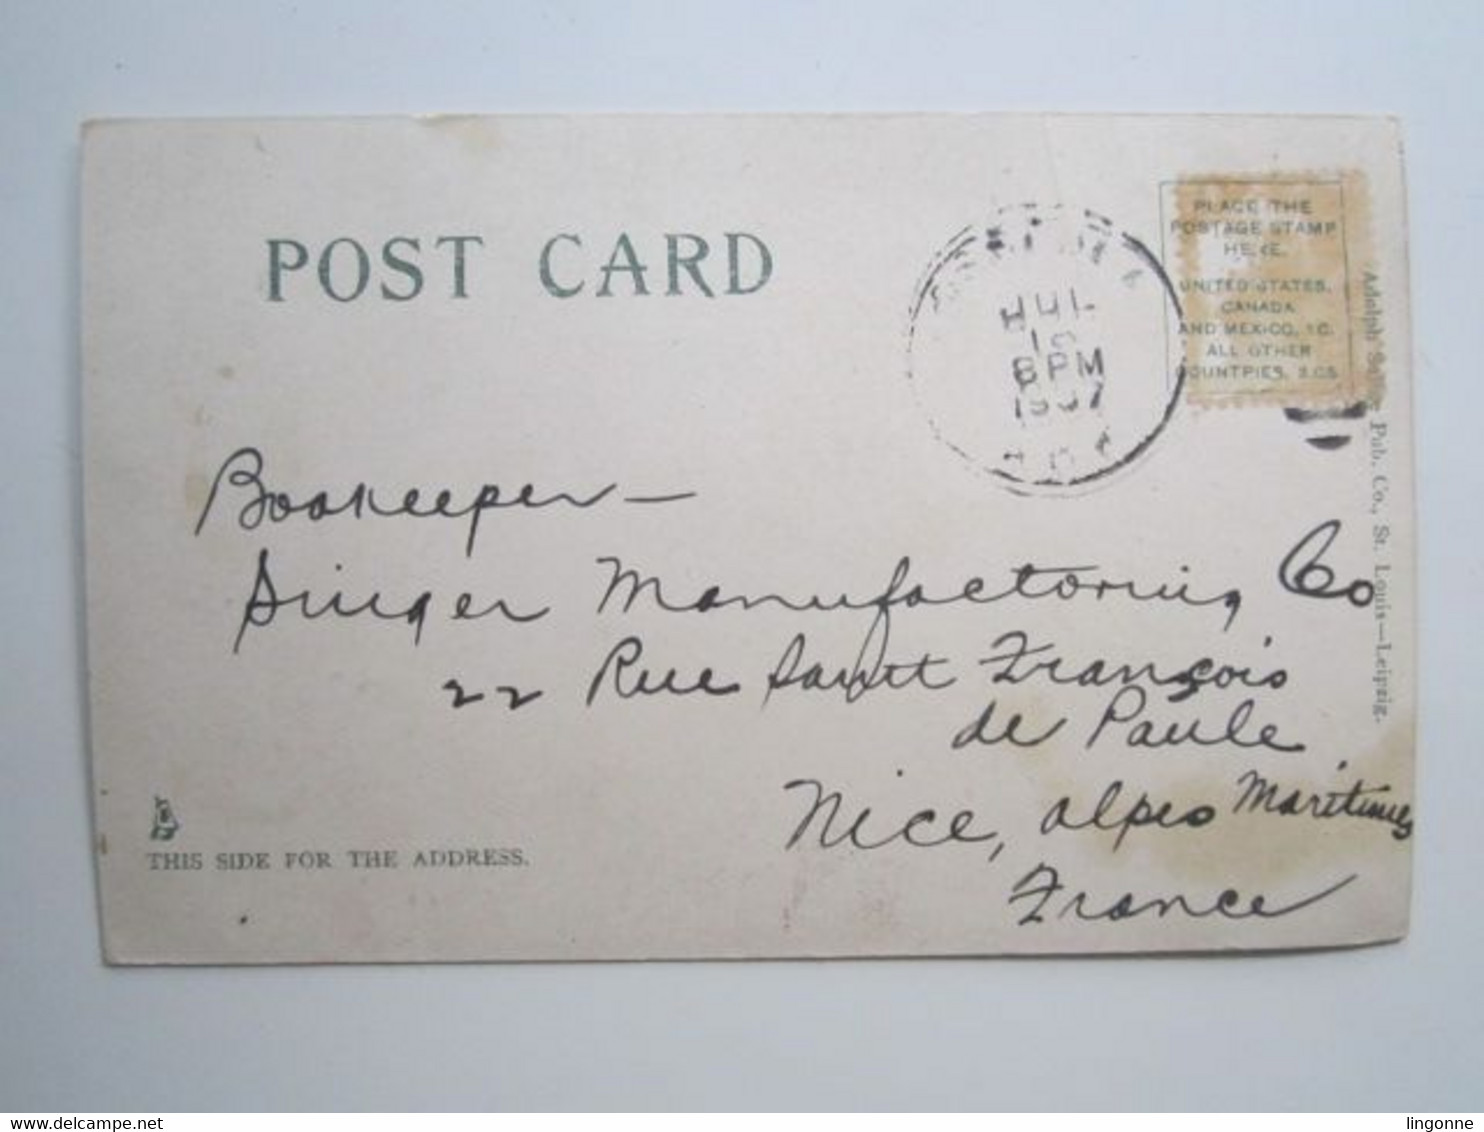 POST CARD
PLACE THE
POSTAGE STAMP
HERE.
UNITED STATES,
CANADA
AND MEXICO, 1C.
ALL OTHER
COUNTRIES, 2 CS.
8 PM
1907
Adolph Selige Pub. Co., St. Louis—Leipzig.
Bookeeper—
Singer Manufactoring Co
22 Rue Saint François
de Paule
Nice, Alpes Maritimes
France
THIS SIDE FOR THE ADDRESS.
www.delcampe.net
lingonne